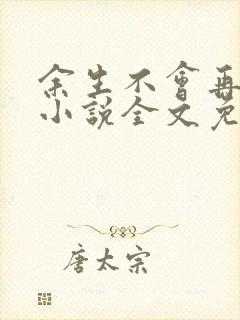 余生不會再
小說全文免
唐太宗